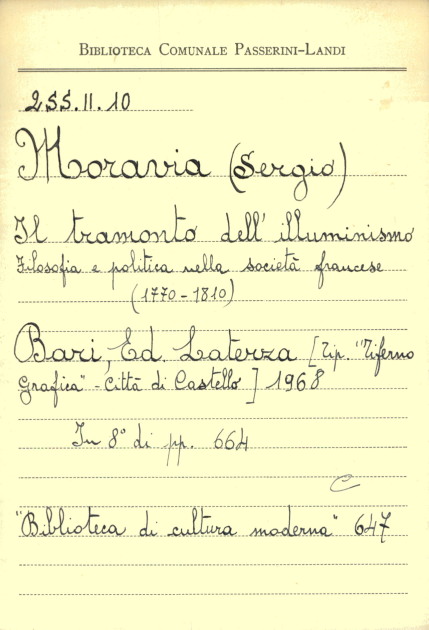 BIBLIOTECA COMUNALE PASSERINI-LANDI
255.II.10
Moravia (Sergio)
Il tramonto dell' illuminismo
Filosofia e politica nella società francese
(1770-1810)
Bari, Ed. Laterza [Tip. "Tiferno
Grafica" - Città di Castello] 1968
In 8° di pp. 664
C
"Biblioteca di cultura moderna" 647